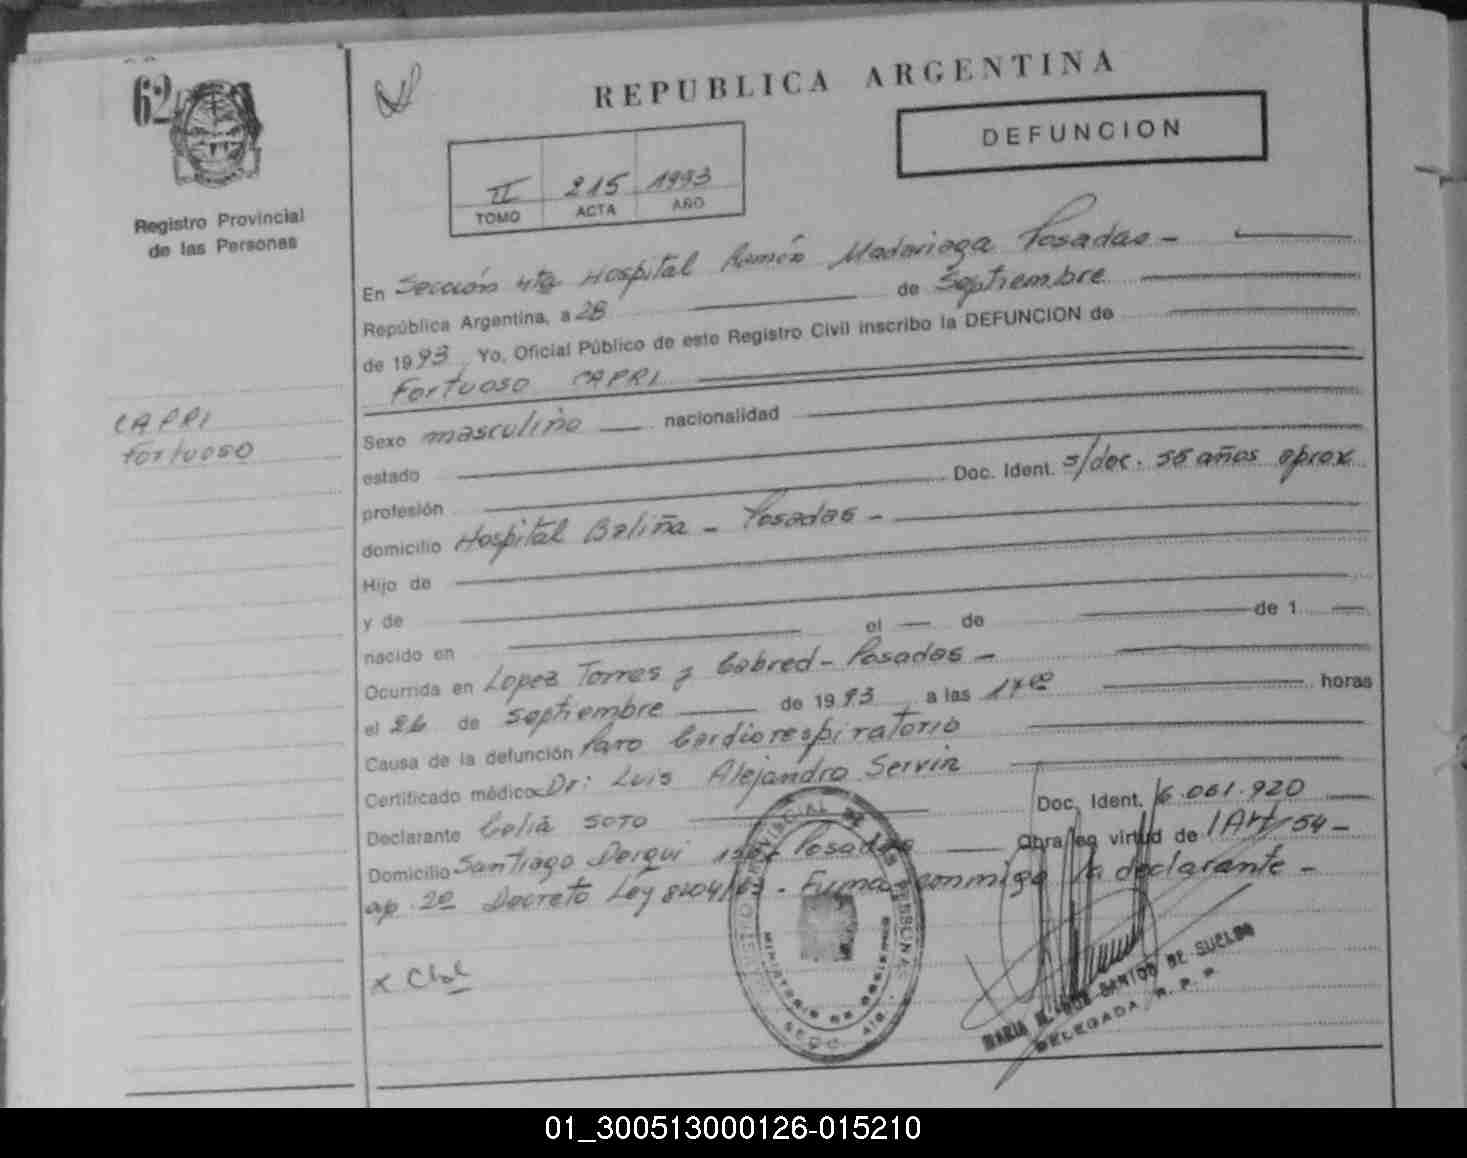 62
REPUBLICA ARGENTINA
DEFUNCION
II 215 1993
TOMO ACTA AÑO
Registro Provincial
de las Personas
CAPRI
Fortuoso
En Sección 4ta Hospital Ramón Madariaga Posadas -
República Argentina, a 28 de Septiembre
de 1993 Yo, Oficial Público de este Registro Civil inscribo la DEFUNCION de
Fortuoso CAPRI
Sexo masculino nacionalidad
estado
profesión Doc. Ident. s/doc. 55 años aprox
domicilio Hospital Baliña - Posadas -
Hijo de
y de
nacido en el de de 1
Ocurrida en Lopez Torres y Cabred - Posadas -
el 26 de septiembre de 1993 a las horas
Causa de la defunción Paro Cardiorespiratorio
Certificado médico Dr: Luis Alejandro Servin
Declarante Celia SOTO Doc. Ident. 6.061.920
Domicilio Santiago Derqui Posadas Obra en virtud de Art 54 -
ap. 2º Decreto Ley 8204/63. Firma conmigo la declarante -
REGISTRO PROVINCIAL DE LAS PERSONAS
MINISTERIO DE GOBIERNO
MARIA SANTOS DE SUELDO
DELEGADA R. P. P.
01_300513000126-015210